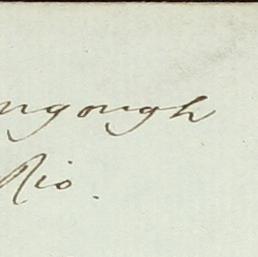 ngough
Rio.